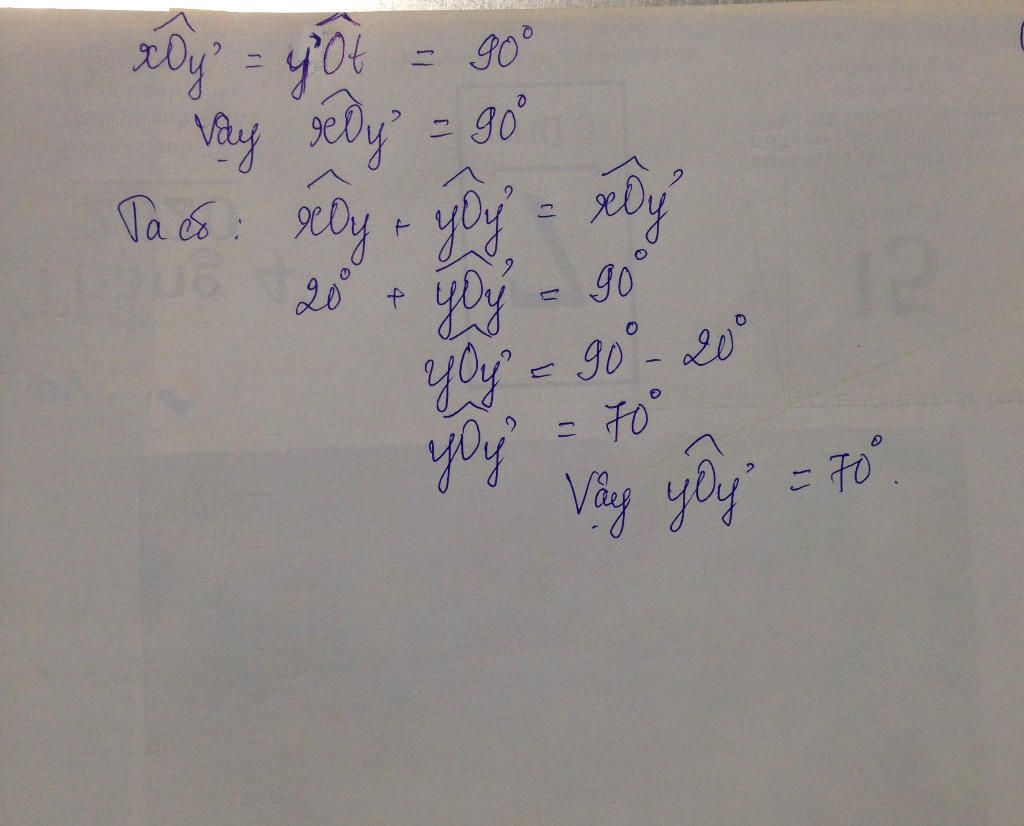 xÔy' = y'Ôt = 90°
Vậy xÔy' = 90°
Ta có: xÔy + yÔy' = xÔy'
20° + yÔy' = 90°
yÔy' = 90° - 20°
yÔy' = 70°
Vậy yÔy' = 70°.